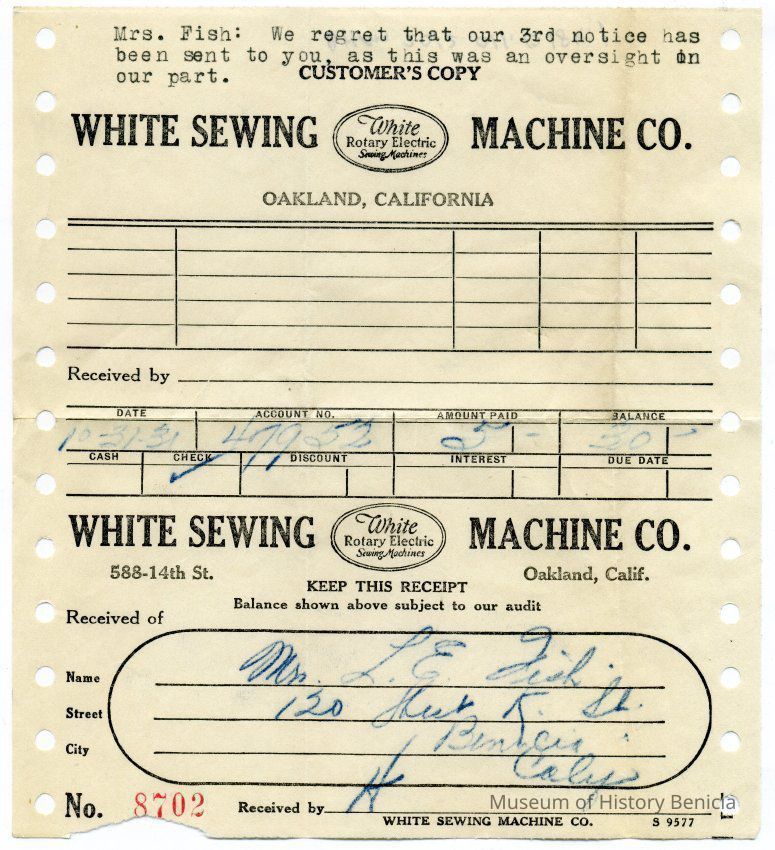 Mrs. Fish: We regret that our 3rd notice has
been sent to you, as this was an oversight on
our part. CUSTOMER'S COPY
WHITE SEWING White Rotary Electric Sewing Machines MACHINE CO.
OAKLAND, CALIFORNIA
Received by
DATE ACCOUNT NO. AMOUNT PAID BALANCE
10-31-31 47952 5 - 30 -
CASH CHECK DISCOUNT INTEREST DUE DATE
WHITE SEWING White Rotary Electric Sewing Machines MACHINE CO.
588-14th St. Oakland, Calif.
KEEP THIS RECEIPT
Balance shown above subject to our audit
Received of
Name Mrs. L. E. Fish
Street 120 K. St.
City Benicia
Calif
No. 8702 Received by H
Museum of History Benicia
WHITE SEWING MACHINE CO. S 9577